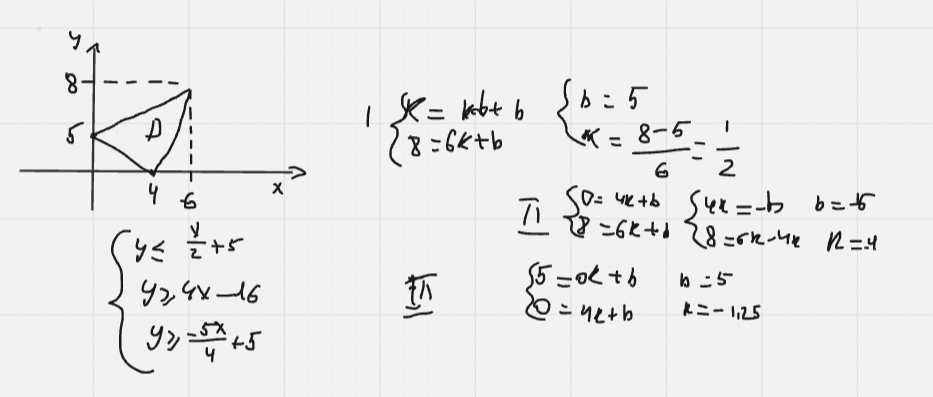 y
8
5
D
4
6
x
y ≤ x/2 + 5
y ≥ 4x - 16
y ≥ -5x/4 + 5
I
8 = 6k + b
b = 5
k = (8 - 5)/6 = 1/2
II
0 = 4k + b
8 = 6k + b
4k = -b
8 = 6k - 4k
k = 4
III
5 = 0k + b
0 = 4k + b
b = 5
k = -1,25